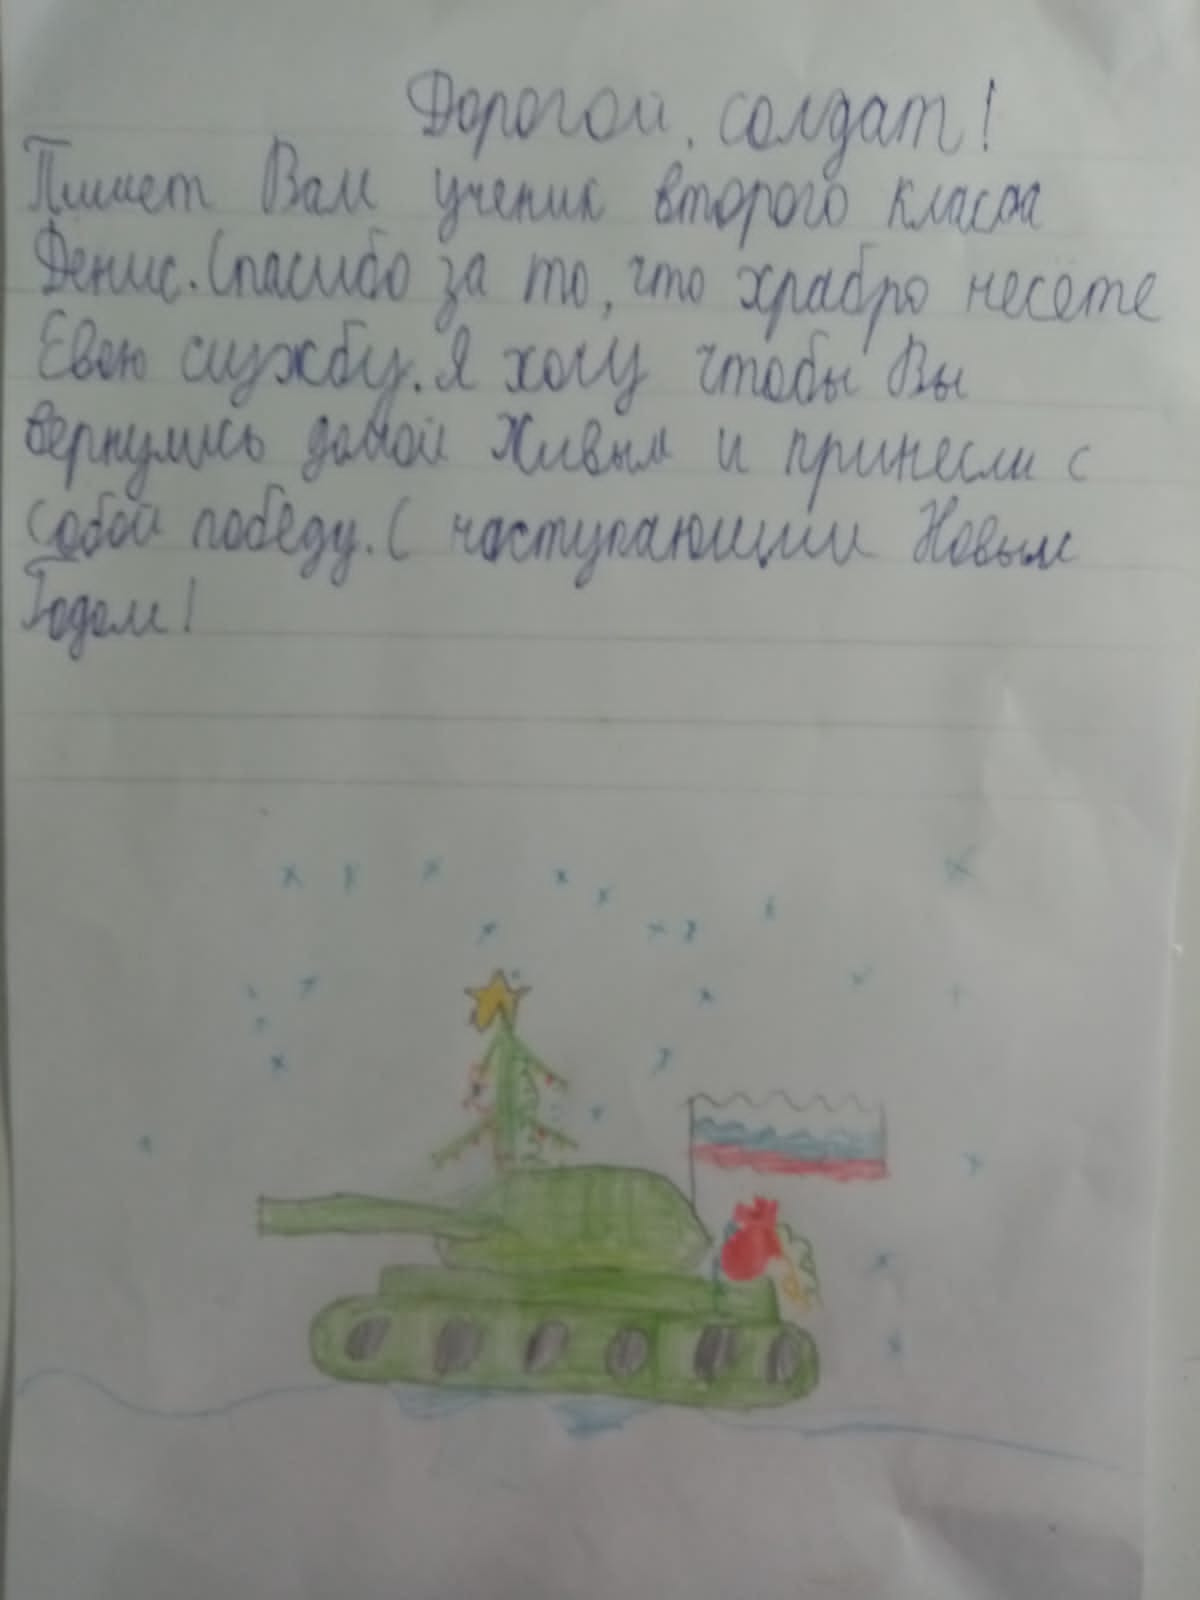 Дорогой, солдат!
Пишет Вам ученик второго класса
Денис. Спасибо за то, что храбро несёте
Свою службу. Я хочу чтобы Вы
вернулись домой Живым и принесли с
собой победу. С наступающим Новым
Годом!